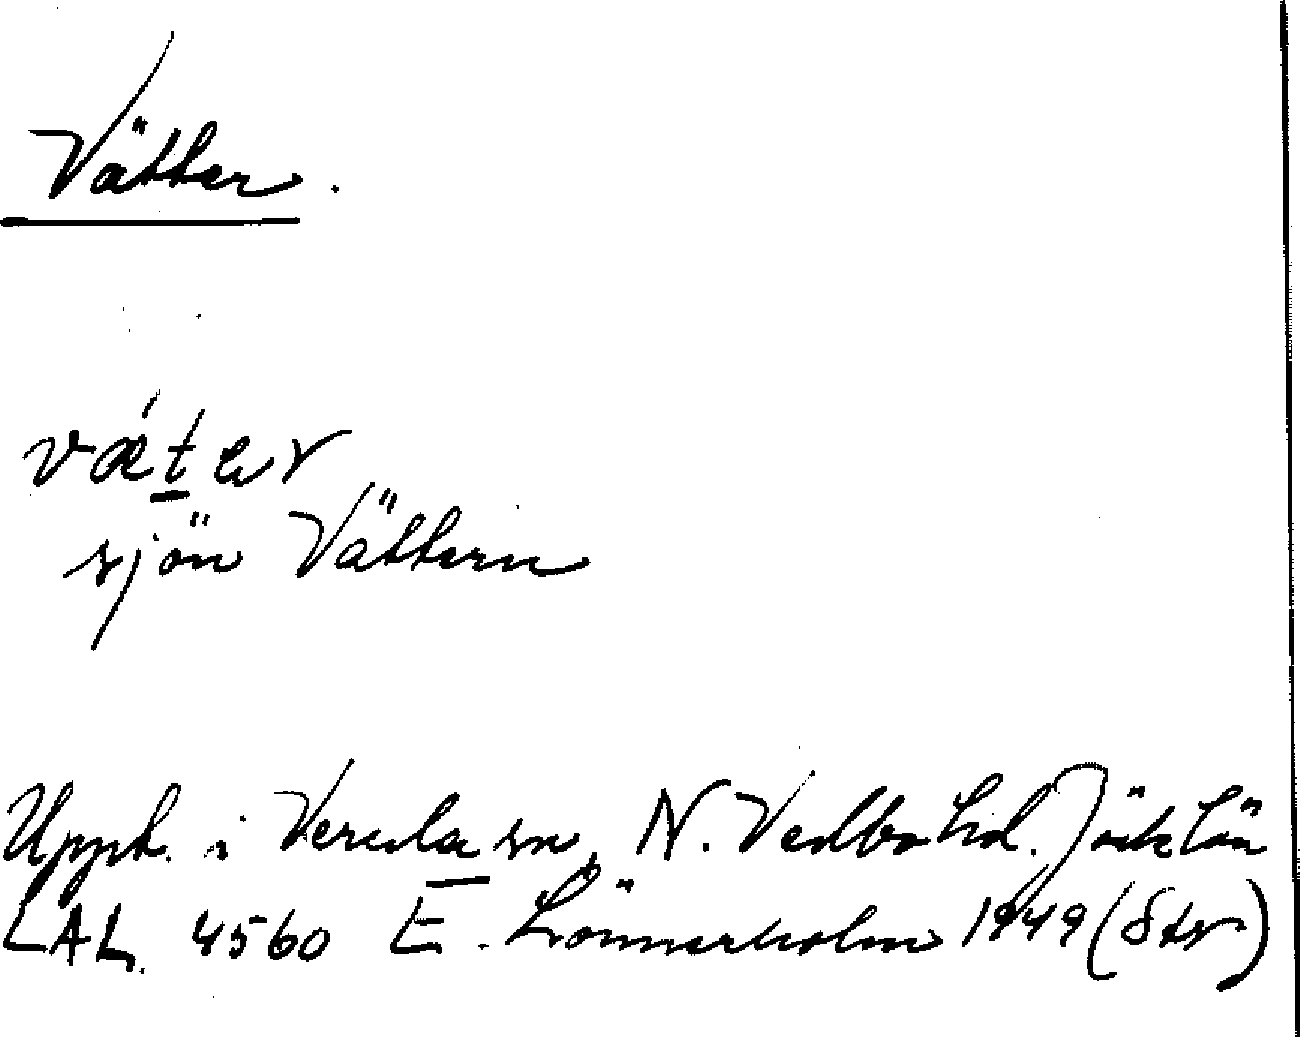 Vätter.
vǽter
sjön Vättern
Uppt. i Vereda sn, N. Vedbo hd. Jönk län
LAL. 4560 E. Lönnerholm 1949 (Str)